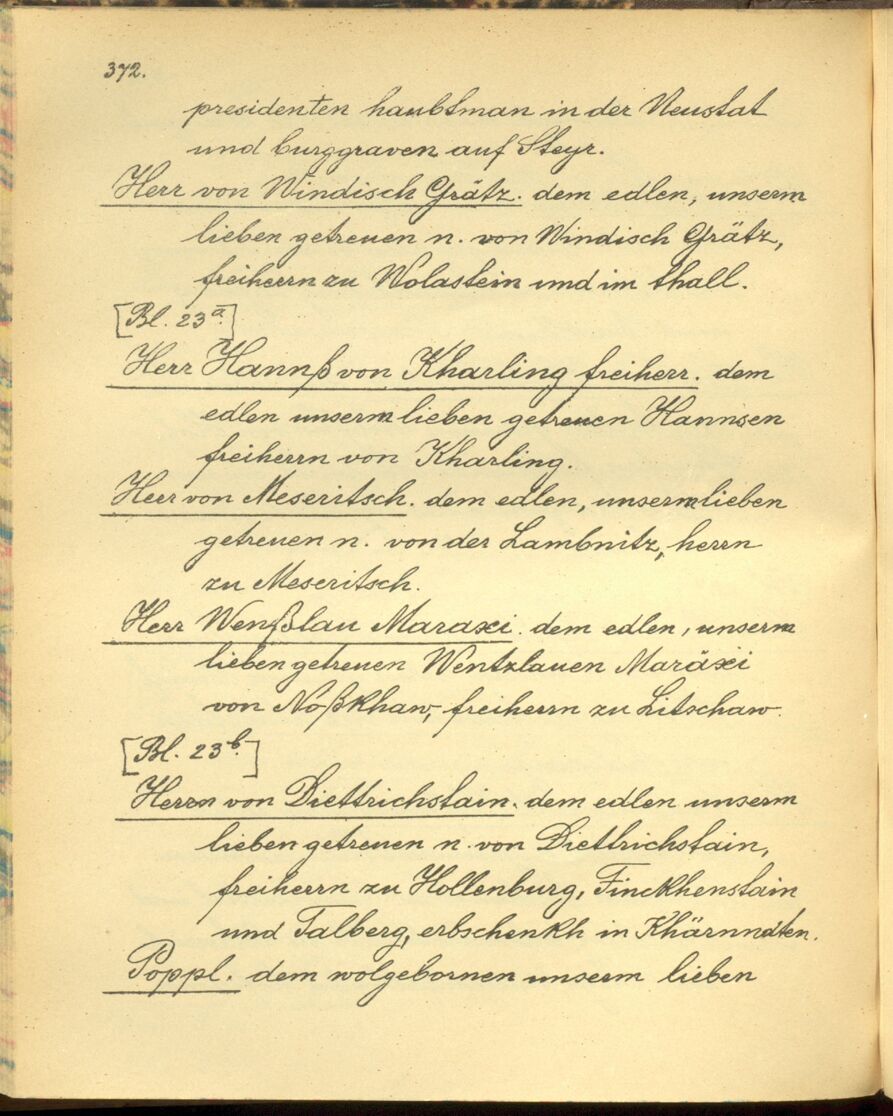 372.
presidenten haubtman in der Neustat
und burggraven auf Steyr.
Herr von Windisch Grätz. dem edlen, unserm
lieben getreuen n. von Windisch Grätz,
freiherrn zu Wolastein und im thall.
[Bl. 23a.]
Herr Hannß von Kharling freiherr. dem
edlen unserm lieben getreuen Hannsen
freiherrn von Kharling.
Herr von Meseritsch. dem edlen, unserm lieben
getreuen n. von der Lambnitz, herrn
zu Meseritsch.
Herr Wenßlau Maraxi. dem edlen, unserm
lieben getreuen Wentzlauen Maräxi
von Noßkhaw, freiherrn zu Litschaw.
[Bl. 23b.]
Herrn von Diettrichstain. dem edlen unserm
lieben getreuen n. von Diettrichstain,
freiherrn zu Hollenburg, Finckhenstain
und Talberg, erbschenkh in Khärnndten.
Poppl. dem wolgebornen unserm lieben